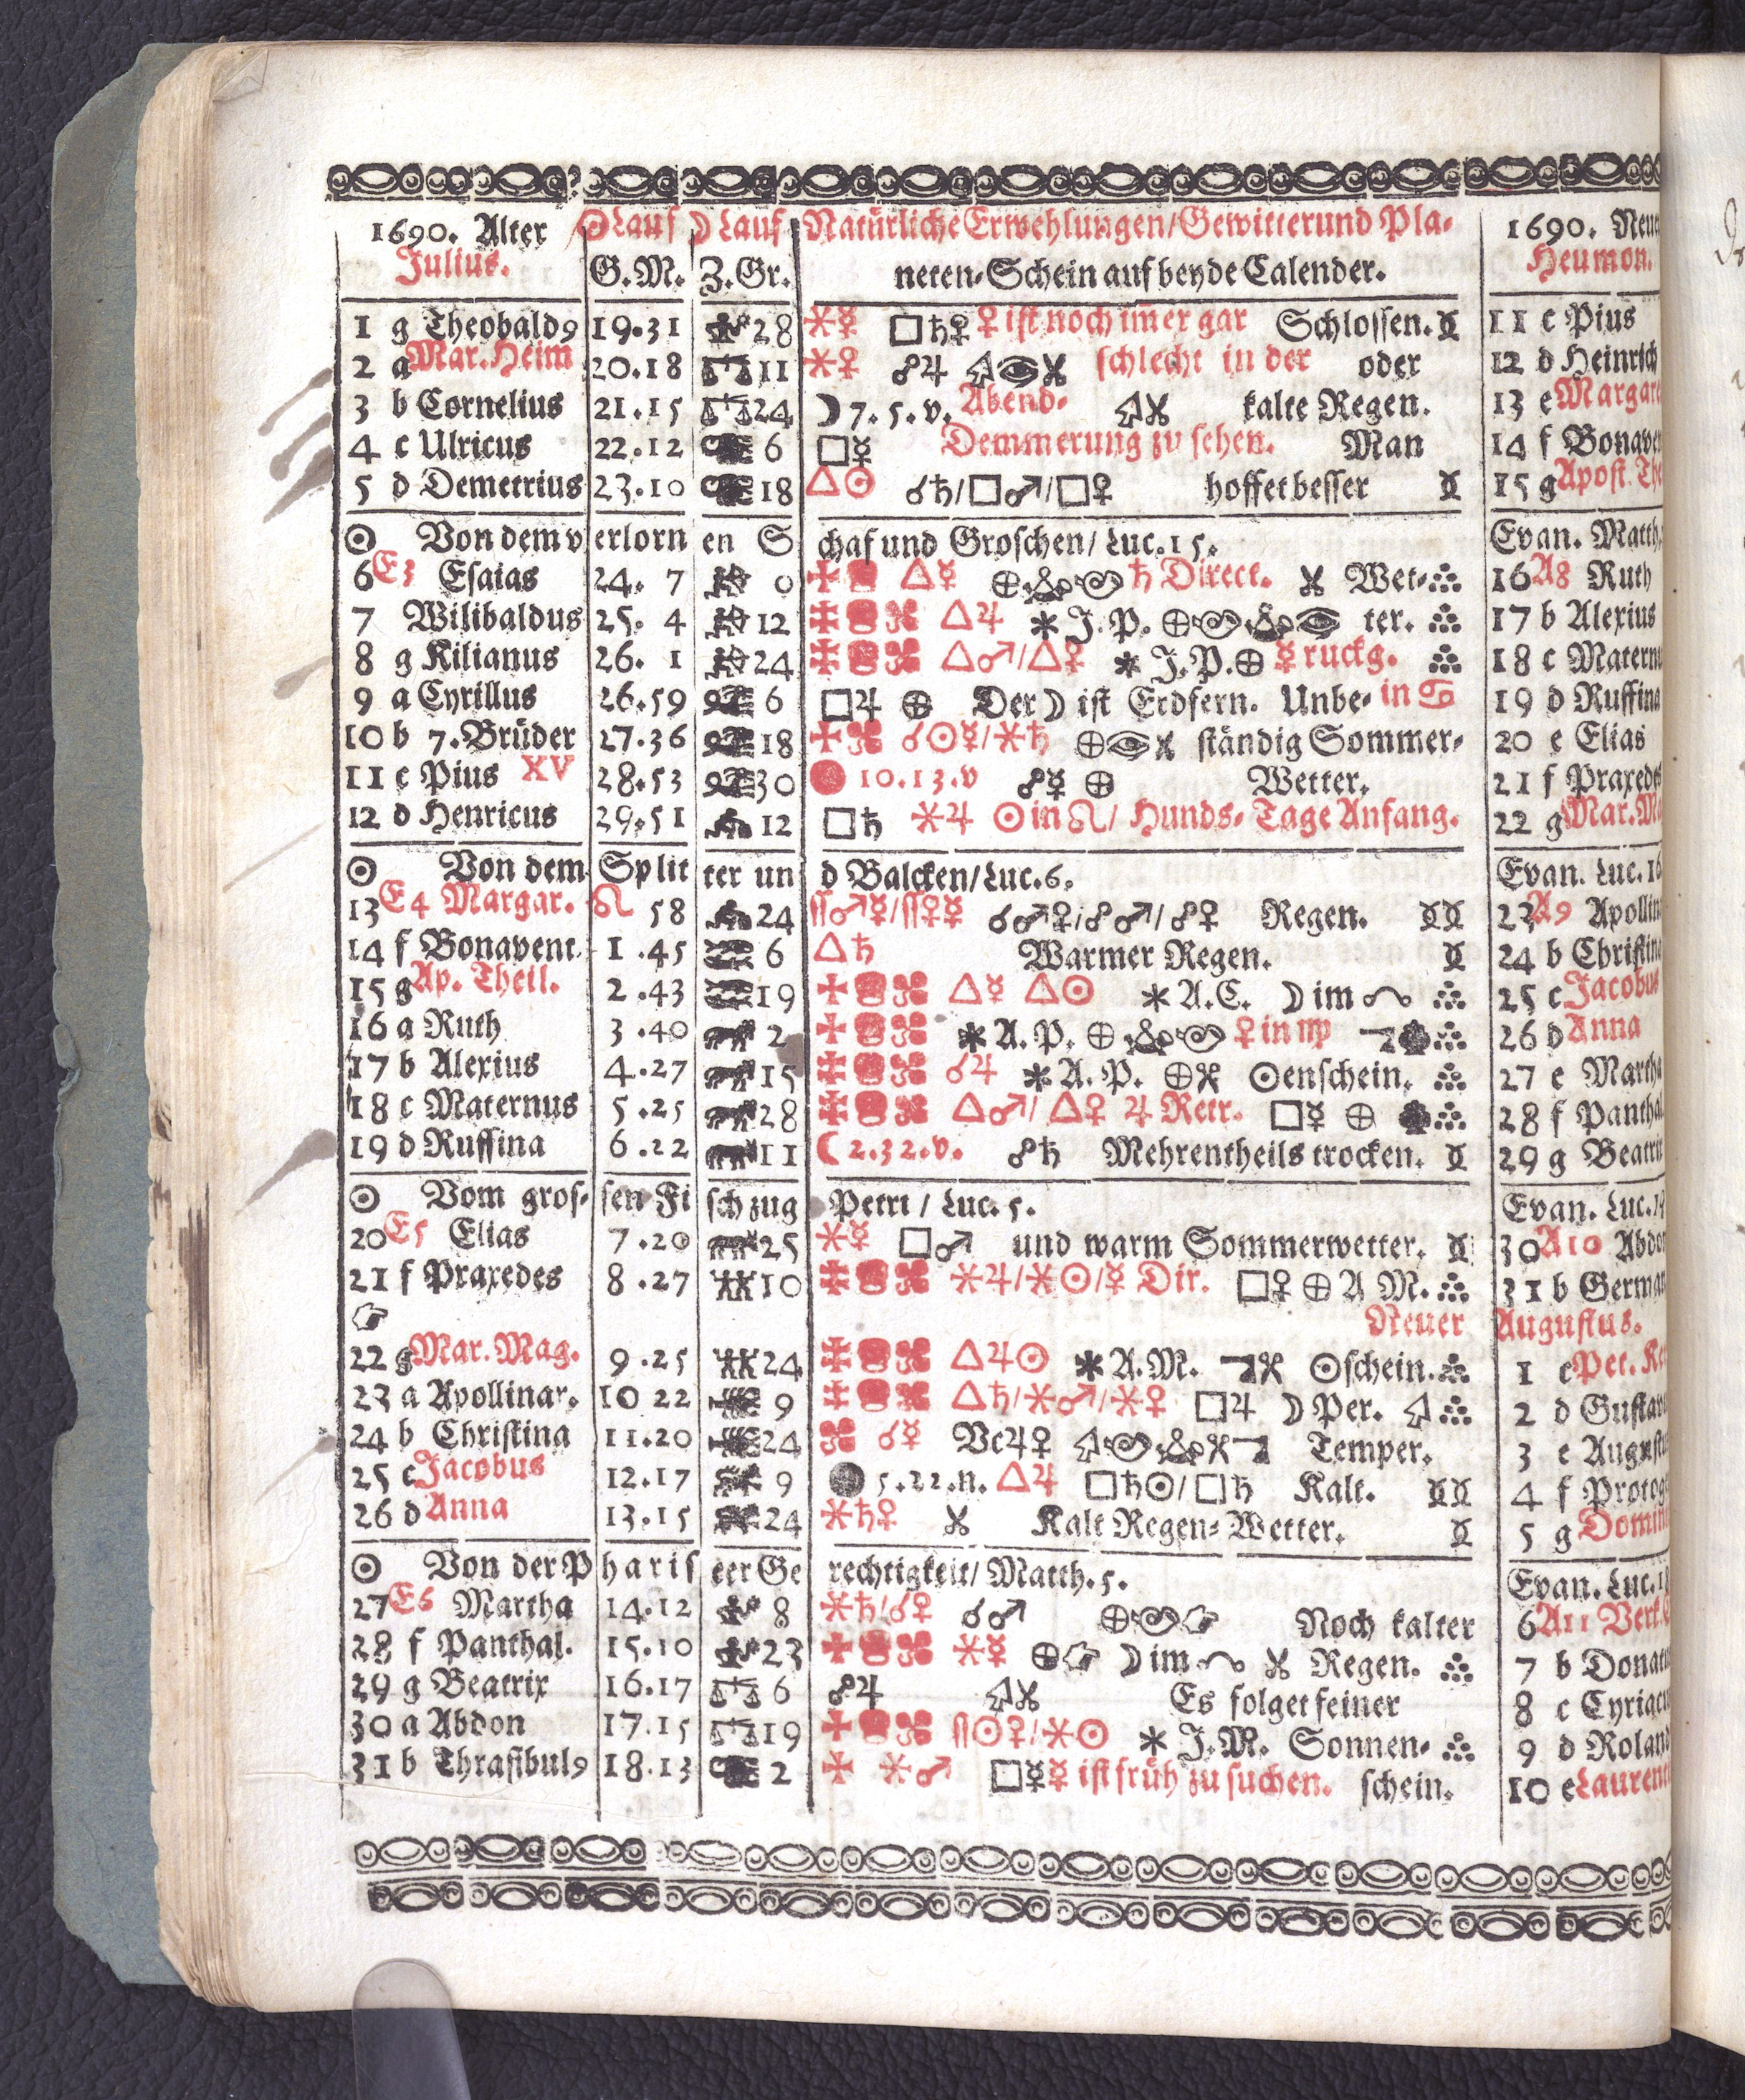 1690. Alter ☉Lauf ☽Lauf Natürliche Erwehlungen/Gewitter und Pla- 1690. Neu
Julius. G.M. Z.Gr. neten-Schein auf beyde Calender. Heumon.
1 g Theobald9 19.31 28 ⚹☿ □♄♀ ♀ ist noch im̃er gar Schlossen. 11 c Pius
2 a Mar. Heim 20.18 ♎ 11 ⚹♀ ☍♃ schlecht in der oder 12 d Heinrich
3 b Cornelius 21.15 ♎ 24 ☽ 7. 5. v. Abend- kalte Regen. 13 e Margare
4 c Ulricus 22.12 6 □☿ Demmerung zu sehen. Man 14 f Bonaven
5 d Demetrius 23.10 18 △☉ ☌♄/□♂/□♀ hoffet besser 15 g Apost. The
☉ Von dem verlornen Schaf und Groschen/ Luc. 15. Evan. Matth.
6 E3 Esaias 24. 7 0 △☿ ⊕ ♄ Direct. Wet- 16 A8 Ruth
7 Wilibaldus 25. 4 12 △♃ * J. P. ⊕ ter. 17 b Alexius
8 g Kilianus 26. 1 24 △♂/△♀ * J. P. ⊕ ☿ ruckg. 18 c Matern
9 a Cyrillus 26.59 6 □♃ ⊕ Der ☽ ist Erdfern. Unbe- in ♋ 19 d Ruffina
10 b 7. Brüder 27.36 18 ☌☉☿/⚹♄ ⊕ ständig Sommer- 20 e Elias
11 c Pius XV 28.53 30 10.13.v ☍☿ ⊕ Wetter. 21 f Praxedes
12 d Henricus 29.51 12 □♄ ⚹♃ ☉ in ♌/ Hunds-Tage Anfang. 22 g Mar. Ma
☉ Von dem Splitter und Balcken/Luc. 6. Evan. Luc. 16
13 E4 Margar. ♌ 58 24 ♂☿/ ♀☿ ☌♂♀/☍♂/☍♀ Regen. 23 A9 Apollin
14 f Bonavent. 1.45 6 △♄ Warmer Regen. 24 b Christin
15 g Ap. Theil. 2.43 19 △☿ △☉ * A. C. ☽ im 25 c Jacobus
16 a Ruth 3.40 2 * A. P. ⊕ ♀ in ♍ 26 d Anna
17 b Alexius 4.27 15 ☌♃ * A. P. ⊕ ☉enschein. 27 e Martha
18 c Maternus 5.25 28 △♂/ △♀ ♃ Retr. □☿ ⊕ 28 f Pantha
19 d Ruffina 6.22 11 ☾ 2.32.v. ☍♄ Mehrentheils trocken. 29 g Beatri
☉ Vom grossen Fischzug Petri / Luc. 5. Evan. Luc. 19
20 E5 Elias 7.20 25 ⚹☿ □♂ und warm Sommerwetter. 30 A10 Abdo
21 f Praxedes 8.27 10 ⚹♃/⚹☉/☿ Dir. □♀ ⊕ A M. 31 b German
Neuer Augustus.
22 g Mar. Mag. 9.25 24 △♃☉ * A.M. ☉schein. 1 c Pet. Ke
23 a Apollinar. 10 22 9 △♄/⚹♂/⚹♀ □♃ ☽ Per. 2 d Gustav
24 b Christina 11.20 24 ☌☿ Vc♃♀ Temper. 3 e August
25 c Jacobus 12.17 9 5.22.n. △♃ □♄☉/□♄ Kalt. 4 f Protog
26 d Anna 13.15 24 ⚹♄♀ Kalt Regen-Wetter. 5 g Domin
☉ Von der Phariseer Gerechtigkeit/ Matth. 5. Evan. Luc. 18
27 E6 Martha 14.12 8 ⚹♄/☌♀ ☌♂ ⊕ Noch kalter 6 A11 Verk.
28 f Panthal. 15.10 23 ⚹☿ ⊕ ☽ im Regen. 7 b Donatu
29 g Beatrix 16.17 ♎ 6 ☍♃ Es folget feiner 8 c Cyriacu
30 a Abdon 17.15 ♎ 19 ☉♀/⚹☉ * J. M. Sonnen- 9 d Roland
31 b Thrasibul9 18.13 2 ⚹♂ □☿ ☿ ist früh zu suchen. schein. 10 e Laurent